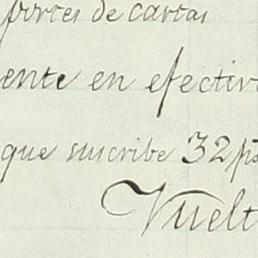 portes de cartas
ente en efectiv
que suscribe 32 ps
Vuelt